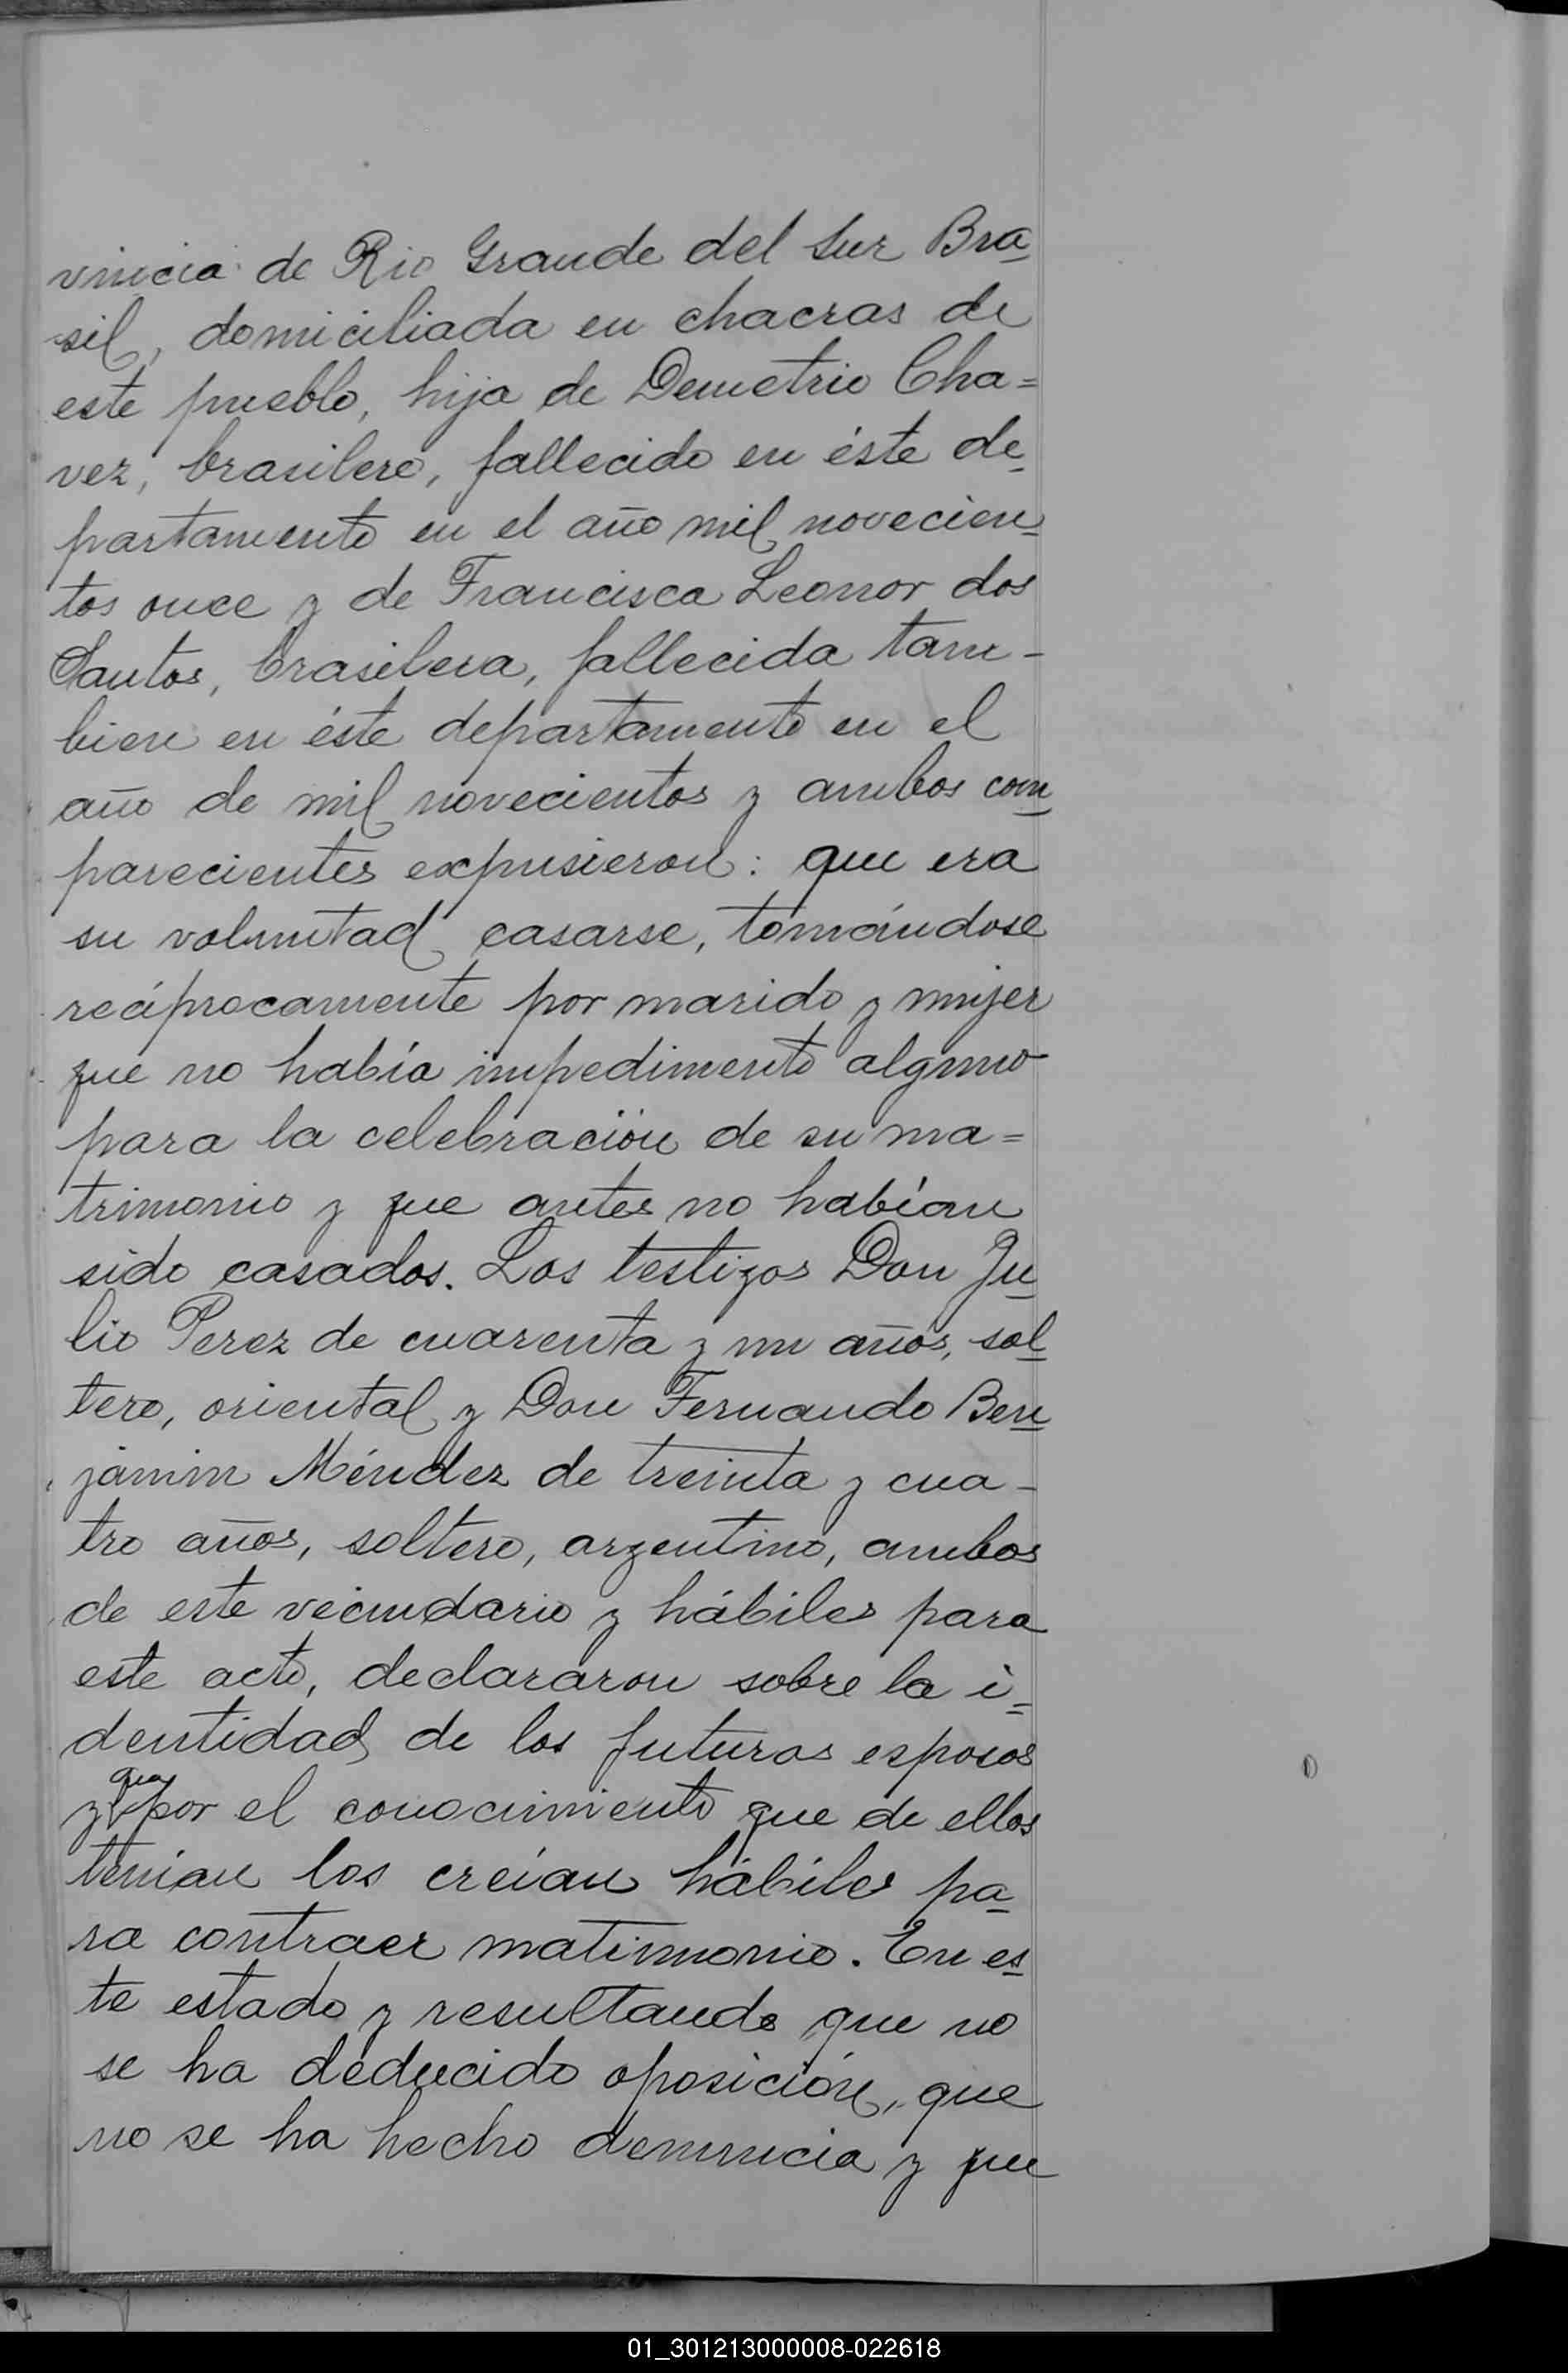 vincia de Rio Grande del Sur Bra-
sil, domiciliada en chacras de
este pueblo, hija de Demetrio Cha=
vez, brasilero, fallecido en éste de-
partamento en el año mil novecien-
tos once y de Francisca Leonor dos
Santos, brasilera, fallecida tam-
bien en éste departamento en el
año de mil novecientos y ambos com-
parecientes expusieron: que era
su voluntad casarse, tomándose
recíprocamente por marido y mujer
que no había impedimento alguno
para la celebración de su ma=
trimonio y que antes no habían
sido casados. Los testigos Don Ju-
lio Perez de cuarenta y un años, sol-
tero, oriental y Don Fernando Ben-
jamin Méndez de treinta y cua-
tro años, soltero, argentino, ambos
de este vecindario y hábiles para
este acto, declararon sobre la i=
dentidad de los futuros esposos
y que por el conocimiento que de ellos
tenían los creían hábiles pa-
ra contraer matimonio. En es-
te estado y resultando que no
se ha deducido oposición, que
no se ha hecho denuncia y que
01_301213000008-022618